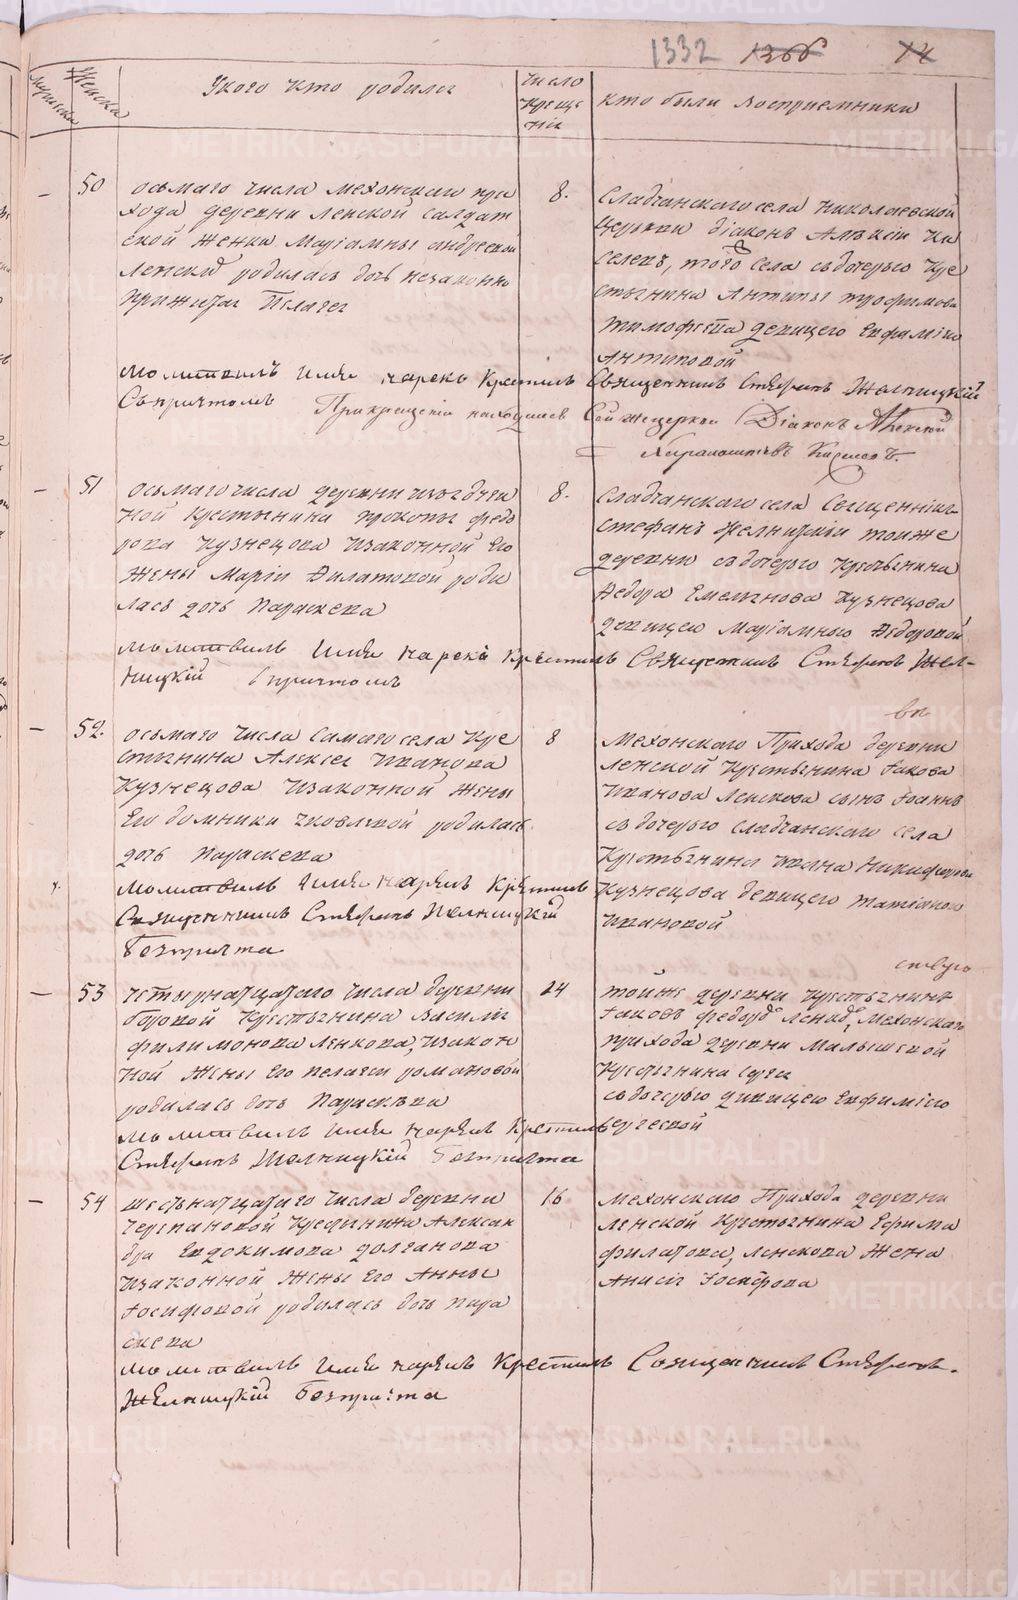 1332 1366 14
Мужеска
Женска
У кого кто родился
число крещенія
кто были восприемники
50
осьмаго числа мехонскаго при
хода деревни Ленской салдат
ской женки Маріамны андреевой
Ленских родилась дочь незаконно
прижитая Пелагея
8.
Сладчанскаго села Николаевской
Церькви діаконъ Алексій Ки
селевъ, того села съ дочерью Кре
стьянина Антипы трофимова
тимофеева девицею Евфиміею
Антиповой
молитвилъ имя нарекъ Крестилъ Священникъ Стефанъ Желницкій
Съ причтомъ При крещеніи находился Сей же церкви Діаконъ Алексей
Киселевъ.
51
осьмаго числа деревни
ной крестьянина прокопья федо
рова Кузнецова и законной Его
жены Маріи Филатовой роди
лась дочь Параскева
8.
Сладчанскаго села Священникъ
Стефанъ Желницкій тои же
деревни съ дочерью крестьянина
Федора Емельянова Кузнецова
девицею Маріамною Федоровой
молитвилъ имя нарекъ Крестилъ Священникъ Стефанъ Жел-
ницкій с причтомъ
52.
осьмаго числа Самаго села Кре
стьянина Алексея Иванова
Кузнецова и законной жены
Его домники яковлевой родилась
дочь Параскева
8
Мехонскаго Прихода деревни
Ленской Крестьянина Іакова
Иванова Ленскова сынъ Іоаннъ
съ дочерью Сладчанскаго села
Крестьянина Ивана Никифорова
Кузнецова девицею Татіаною
Ивановой
молитвилъ имя нарекъ Крестилъ
Священникъ Стефанъ Желницкій
безпричта
53
четырнатцатаго числа деревни
боровой Крестьянина Василія
филимонова Ленкова, и закон
ной жены Его пелагеи романовой
родилась дочь Параскева
14
той же деревни Крестьянинъ
Іаковъ федоровъ Мехонскаго
прихода деревни Малышевой
Крестьянина
съ дочерью девицею Евфиміею
молитвилъ имя нарекъ Крестилъ
Стефанъ Желницкій безпричта
54
шестьнатцатаго числа деревни
Черепановой Крестьянина Алексан
дра Евдокимова долганова
и законной жены Его Анны
Іосифовой родилась дочь пара
скева
16
Мехонскаго Прихода деревни
Ленской Крестьянина Ефима
филатова, Ленскова жена
Анисія Іосифова
молитвилъ имя нарекъ Крестилъ Священникъ Стефанъ
Желницкій безпричта
METRIKI.GASO-URAL.RU